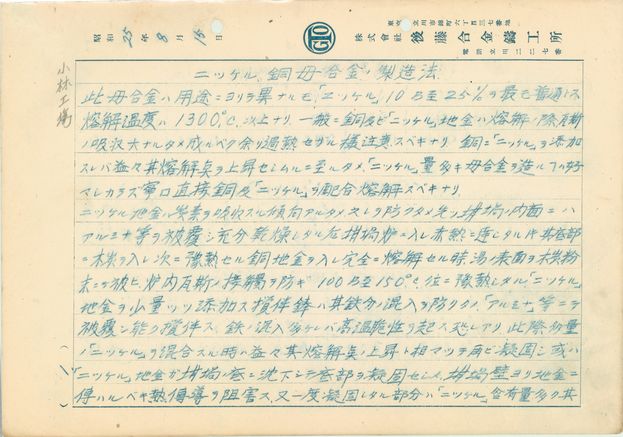 昭和25年8月15日
GTO
東京 立川市錦町六丁目三七番地
株式會社 後藤合金鑄工所
電話立川二二七番
小林工場
ニッケル、銅母合金ノ製造法
此母合金ハ用途ニヨリテ異ナルモ「ニッケル」10%至25%ヲ最モ普通トス
熔解温度ハ1300°C以上ナリ、一般ニ銅及ビ「ニッケル」地金ハ熔解ノ際瓦斯
ノ吸収大ナルタメ成ルベク余リ過熱セザル様注意スベキナリ 銅ニ「ニッケル」ヲ添加
スレバ益々其熔解点ヲ上昇セシムルニ至ルタメ「ニッケル」量多キ母合金ヲ造ルハ好
マシカラズ寧ロ直接銅及「ニッケル」ヲ配合熔解スベキナリ
ニッケル地金ハ炭素ヲ吸収スル傾向アルタメ之レヲ防グタメ先ヅ坩堝ノ内面ニハ
アルミナ等ヲ被覆シ充分乾燥シタル后坩堝炉ニ入レ赤熱ニ達シタル時其底部
ニ木炭ヲ入レ次ニ豫熱セル銅地金ヲ入レ完全ニ熔解セル時湯ノ表面ヲ木炭粉
末ニテ被ヒ炉内瓦斯ノ接觸ヲ防ギ100%至150°C位ニ豫熱シタル「ニッケル」
地金ヲ小量ヅツ添加ス攪伴鋒ハ其鉄分ノ混入ヲ防グタメ「アルミナ」等ニテ
被覆シ能ク攪伴ス 鉄ノ混入多ケレバ高温脆性ヲ起ス恐レアリ、此際多量
ノ「ニッケル」ヲ混合スル時ハ益々其熔解点ノ上昇ト相マッテ再ビ凝固シ或ハ
「ニッケル」地金ガ坩堝ノ底ニ沈下シテ底部ヲ凝固セシメ、坩堝壁ヨリ地金ニ
傳ハルベキ熱傳導ヲ阻害ス、又一度凝固シタル部分ハ「ニッケル」含有量多ク其